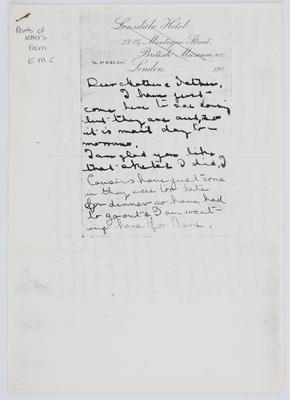 Parts of
letters
from
E M C
Lonsdale Hotel
23-24, Montague Street,
British Museum, W.C.
London. 191
Dear Mother & Father,
I have just
come here to see
but they are out, so
it is maid day to-
morrow.
I am glad you like
that sketch I did,
Cousins have just come
in they were too late
for dinner so have had
to go out & I am wait-
ing here for